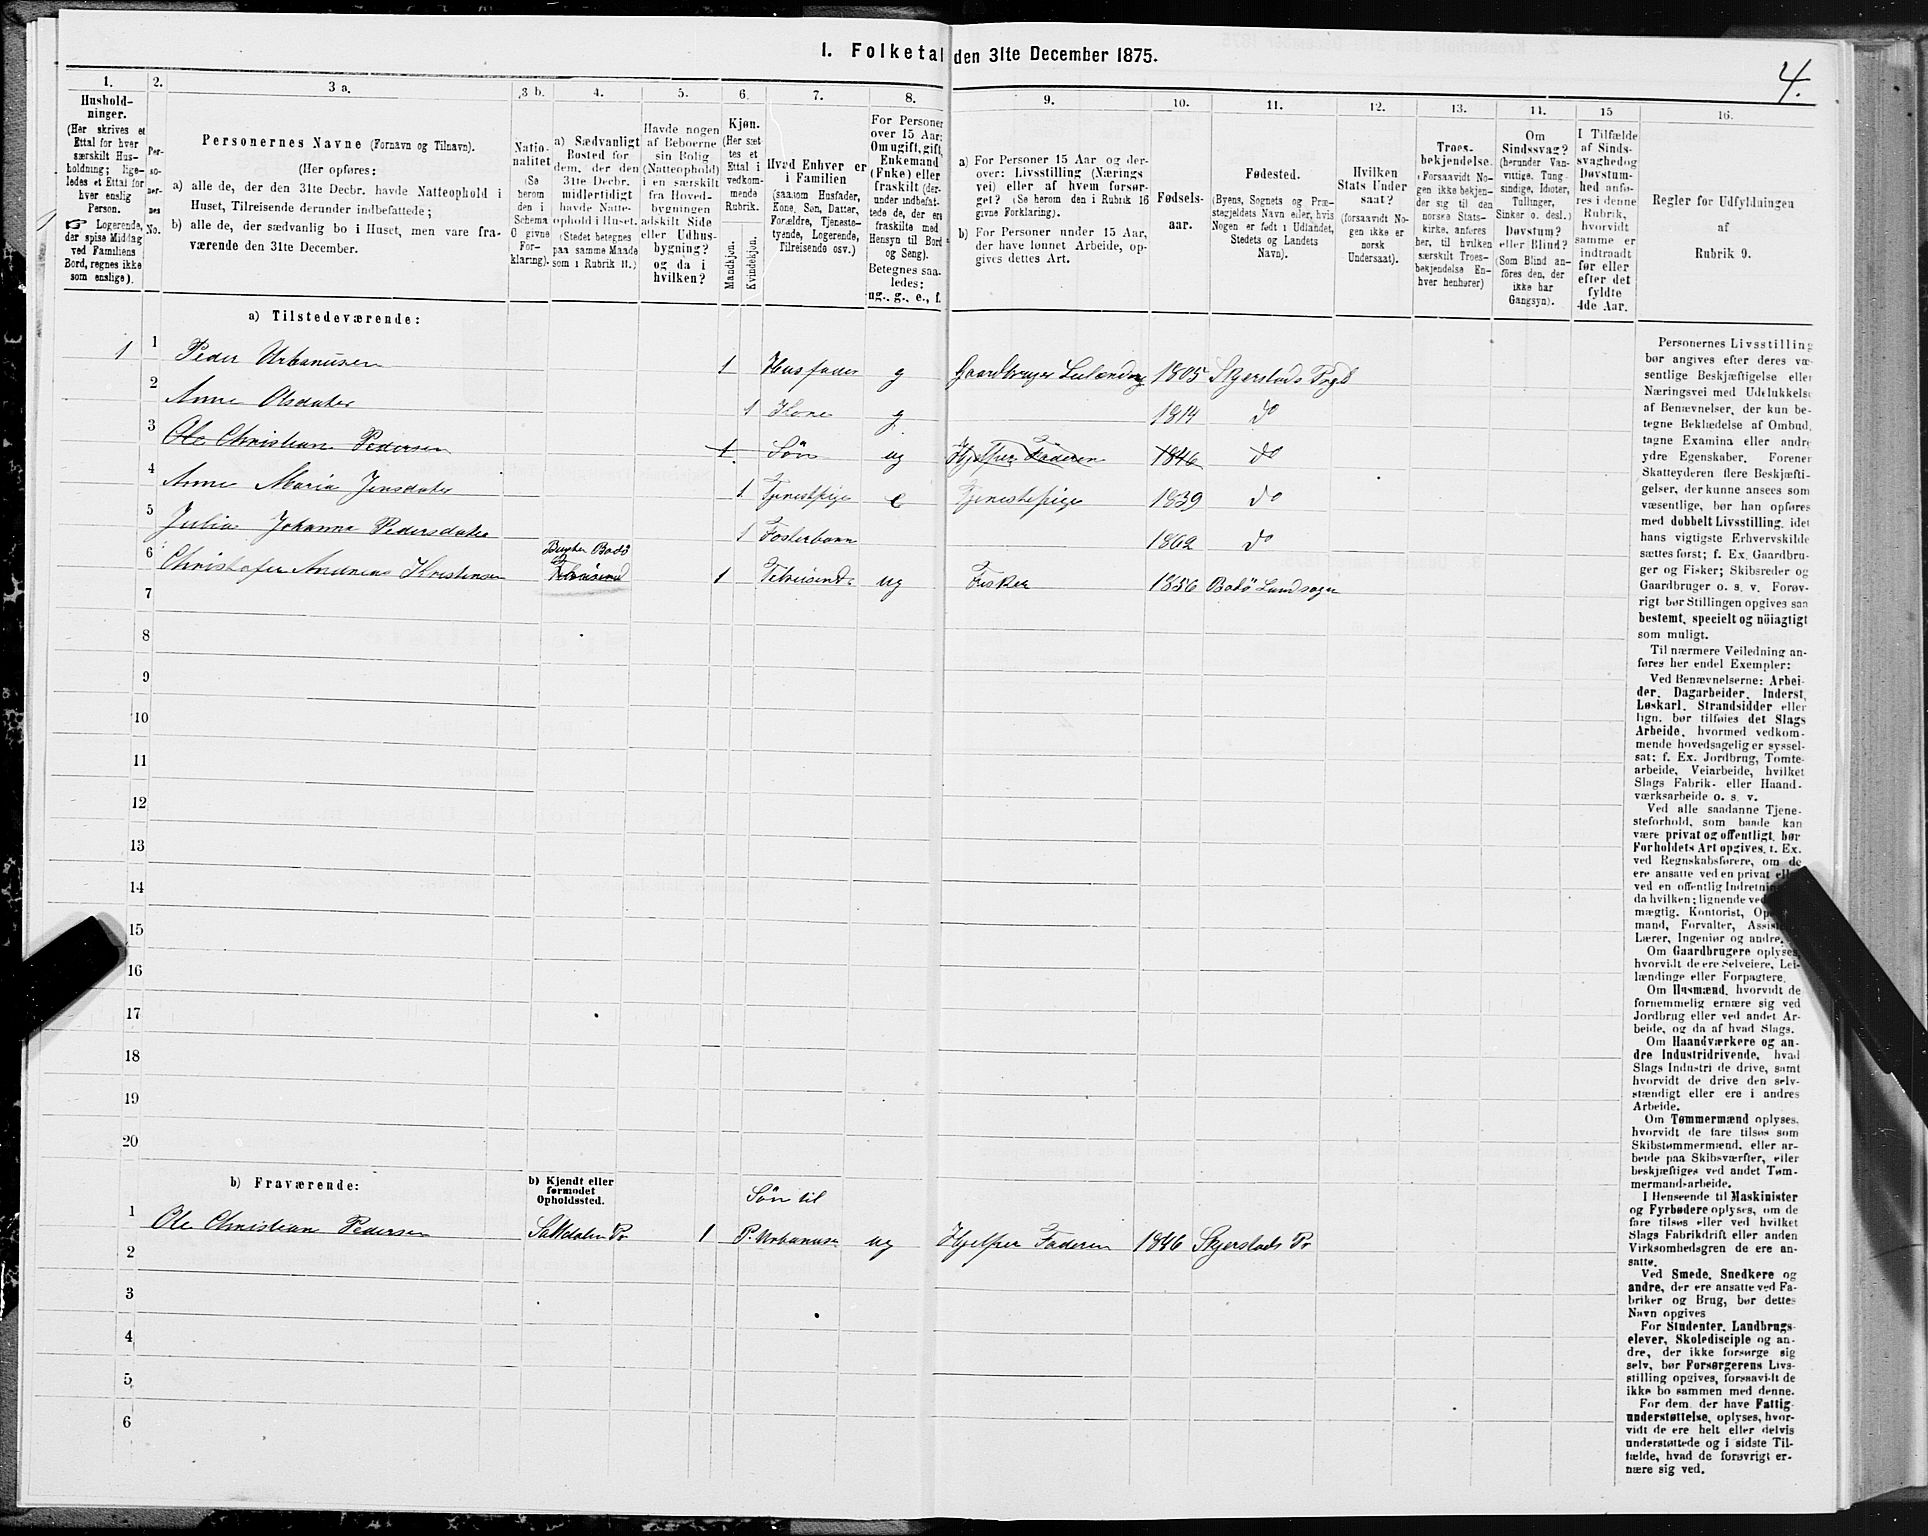 1. Folketal den 31te December 1875.
4.
1.
Hushold-
ninger.
(Her skrives et
Ettal for hver
særskilt Hus-
holdning; lige-
ledes et Ettal for
hver enslig
Person.
☞ Logerende,
der spise Middag
ved Familiens
Bord, regnes ikke
som enslige).
2.
Per-
so-
ner-
nes
No.
3 a.
Personernes Navne (Fornavn og Tilnavn).
(Her opføres:
a) alle de, der den 31te Decbr. havde Natteophold i
Huset, Tilreisende derunder indbefattede;
b) alle de, der sædvanlig bo i Huset, men vare fra-
værende den 31te December.
3 b.
Natio-
nalitet
(Se
herom
den i
Schema
O givne
For-
klaring).
4.
a) Sædvanligt
Bosted for
dem, der den
31te Decbr.
midlertidigt
havde Natte-
ophold i Huset.
(Stedet betegnes
paa samme Maade
som i Rubrik 11.)
5.
Havde nogen
af Beboerne
sin Bolig
(Natteophold)
i en særskilt
fra Hoved-
bygningen
adskilt Side
eller Udhus-
bygning?
og da i
hvilken?
6.
Kjøn.
(Her sæt
tes et
Ettal i
vedkom-
mende
Rubrik.
Mandkjøn.
Kvindekjøn.
7.
Hvad Enhver er
i Familien
(saasom Husfader,
Kone, Søn, Datter,
Forældre, Tjeneste-
tyende, Logerende,
Tilreisende osv.)
8.
For Personer
over 15 Aar:
Om ugift, gift,
Enkemand
(Enke) eller
fraskilt (der-
under indbefat-
tede de, der ere
fraskilte med
Hensyn til Bord
og Seng).
Betegnes saa-
ledes:
ug., g., e., f.
9.
a) For Personer 15 Aar og der-
over: Livsstilling (Nærings
vei) eller af hvem forsør-
get? (Se herom den i Rubrik 16
givne Forklaring).
b) For Personer under 15 Aar,
der have lønnet Arbeide, op-
gives dettes Art.
10.
Fødsels-
aar.
11.
Fødested.
(Byens, Sognets og Præ-
stegjeldets Navn eller, hvis
Nogen er født i Udlandet,
Stedets og Landets
Navn).
12.
Hvilken
Stats Under
saat?
(forsaavidt No-
gen ikke er
norsk
Undersaat).
13.
Troes-
bekjendelse.
(Forsaavidt No-
gen ikke bekjen-
der sig til den
norske Stats-
kirke, anføres
her, til hvilken
særskilt Troes-
bekjendelse En-
hver henhører)
14.
Om
Sindssvag?
(herunder Van-
vittige, Tung-
sindige, Idioter,
Tullinger,
Sinker o. desl.)
Døvstum?
eller Blind?
(Som Blind an-
føres den, der
ikke har
Gangsyn).
15
I Tilfælde
af Sinds-
svaghed og
Døvstum-
hed anfø-
res i denne
Rubrik,
hvorvidt
samme er
indtraadt
før eller
efter det
fyldte
4de Aar.
16.
Regler for Udfyldningen
af
Rubrik 9.
a) Tilstedeværende:
1 1 Peder Urbanusen 1 Husfader g Gaardbruger Leilænding 1805 Skjerstads Prgld
2 Anne Olsdater 1 Kone g 1814 do
3 Ole Christian Pedersen 1 Søn ug Hjelper Faderen 1846 do
4 Anne Maria Jensdater 1 Tjenestpige e Tjenestepige 1839 do
5 Julia Johanna Pedersdater 1 Fosterbarn 1862 do
6 Christofer Andreas Kristensen Bodö 1 Tilreisende ug Fisker 1856 Bodö Landsogn
7
8
9
10
11
12
13
14
15
16
17
18
19
20
b) Fraværende:
b) Kjendt eller
formodet
Opholdssted.
Søn til
1 Ole Christian Pedersen Saltdalen Pr 1 P. Urbanusen ug Hjelper Faderen 1846 Skjerstads Pr
2
3
4
5
6
Personernes Livsstilling
bør angives efter deres væ-
sentlige Beskjæftigelse eller
Næringsvei med Udelukkelse
af Benævnelser, der kun be-
tegne Beklædelse af Ombud,
tagne Examina eller andre
ydre Egenskaber. Forener
Skatteyderen flere Beskjæfti-
gelser, der kunne ansees som
væsentlige, bør han opføres
med dobbelt Livsstilling, idet
hans vigtigste Erhvervskilde
sættes først; f. Ex. Gaardbru-
ger og Fisker; Skibsreder og
Gaardbruger o. s. v. Forøv-
rigt bør Stillingen opgives saa
bestemt, specielt og nöiagtigt
som muligt.
Til nærmere Veiledning an-
føres her endel Exempler:
Ved Benævnelserne: Arbei-
der, Dagarbeider, Inderst,
Løskarl, Strandsidder eller
lign. bør tilføies det Slags
Arbeide, hvormed vedkom-
mende hovedsagelig er syssel-
sat; f. Ex. Jordbrug, Tomte-
arbeide, Veiarbeide, hvilket
Slags Fabrik- eller Haand-
værksarbeide o. s. v.
Ved alle saadanne Tjene-
steforhold, som baade kan
være privat og offentligt, bør
Forholdets Art opgives, t. Ex.
ved Regnskabsførere, om de
ere ansatte ved en privat eller
ved en offentlig Indretning
da hvilken; lignende ved
mægtig, Kontorist, Op
mand, Forvalter, Assist
Lærer, Ingeniør og andre.
Om Gaardbrugere oplyses,
hvorvidt de ere Selveiere, Lei-
lændinge eller Forpagtere.
Om Husmænd, hvorvidt de
fornemmelig ernære sig ved
Jordbrug eller ved andet Ar-
beide, og da af hvad Slags.
Om Haandværkere og an-
dre Industridrivende, hvad
Slags Industri de drive, samt
hvorvidt de drive den selv-
stændigt eller ere i andres
Arbeide.
Om Tømmermænd oplyses,
hvorvidt de fare tilsøs som
Skibstømmermænd, eller ar-
beide paa Skibsværfter, eller
beskjæftiges ved andet Tøm-
mermand-arbeide.
I Henseende til Maskinister
og Fyrbødere oplyses, om de
fare tilsøs eller ved hvilket
Slags Fabrikdrift eller anden
Virksomhedsgren de ere an-
satte.
Ved Smede, Snedkere og
andre, der ere ansatte ved Fa-
briker og Brug, bør dettes
Navn opgives
For Studenter, Landbrugs-
elever, Skoledisciple og an-
dre, der ikke forsørge sig
selv, bør Forsørgerens Livs-
stilling opgives, forsaavidt de
ikke bo sammen med denne.
For dem, der have Fattig-
understøttelse, oplyses, hvor-
vidt de ere helt eller delvis
understøttede og i sidste Til-
fælde, hvad de forøvrigt er-
nære sig ved.